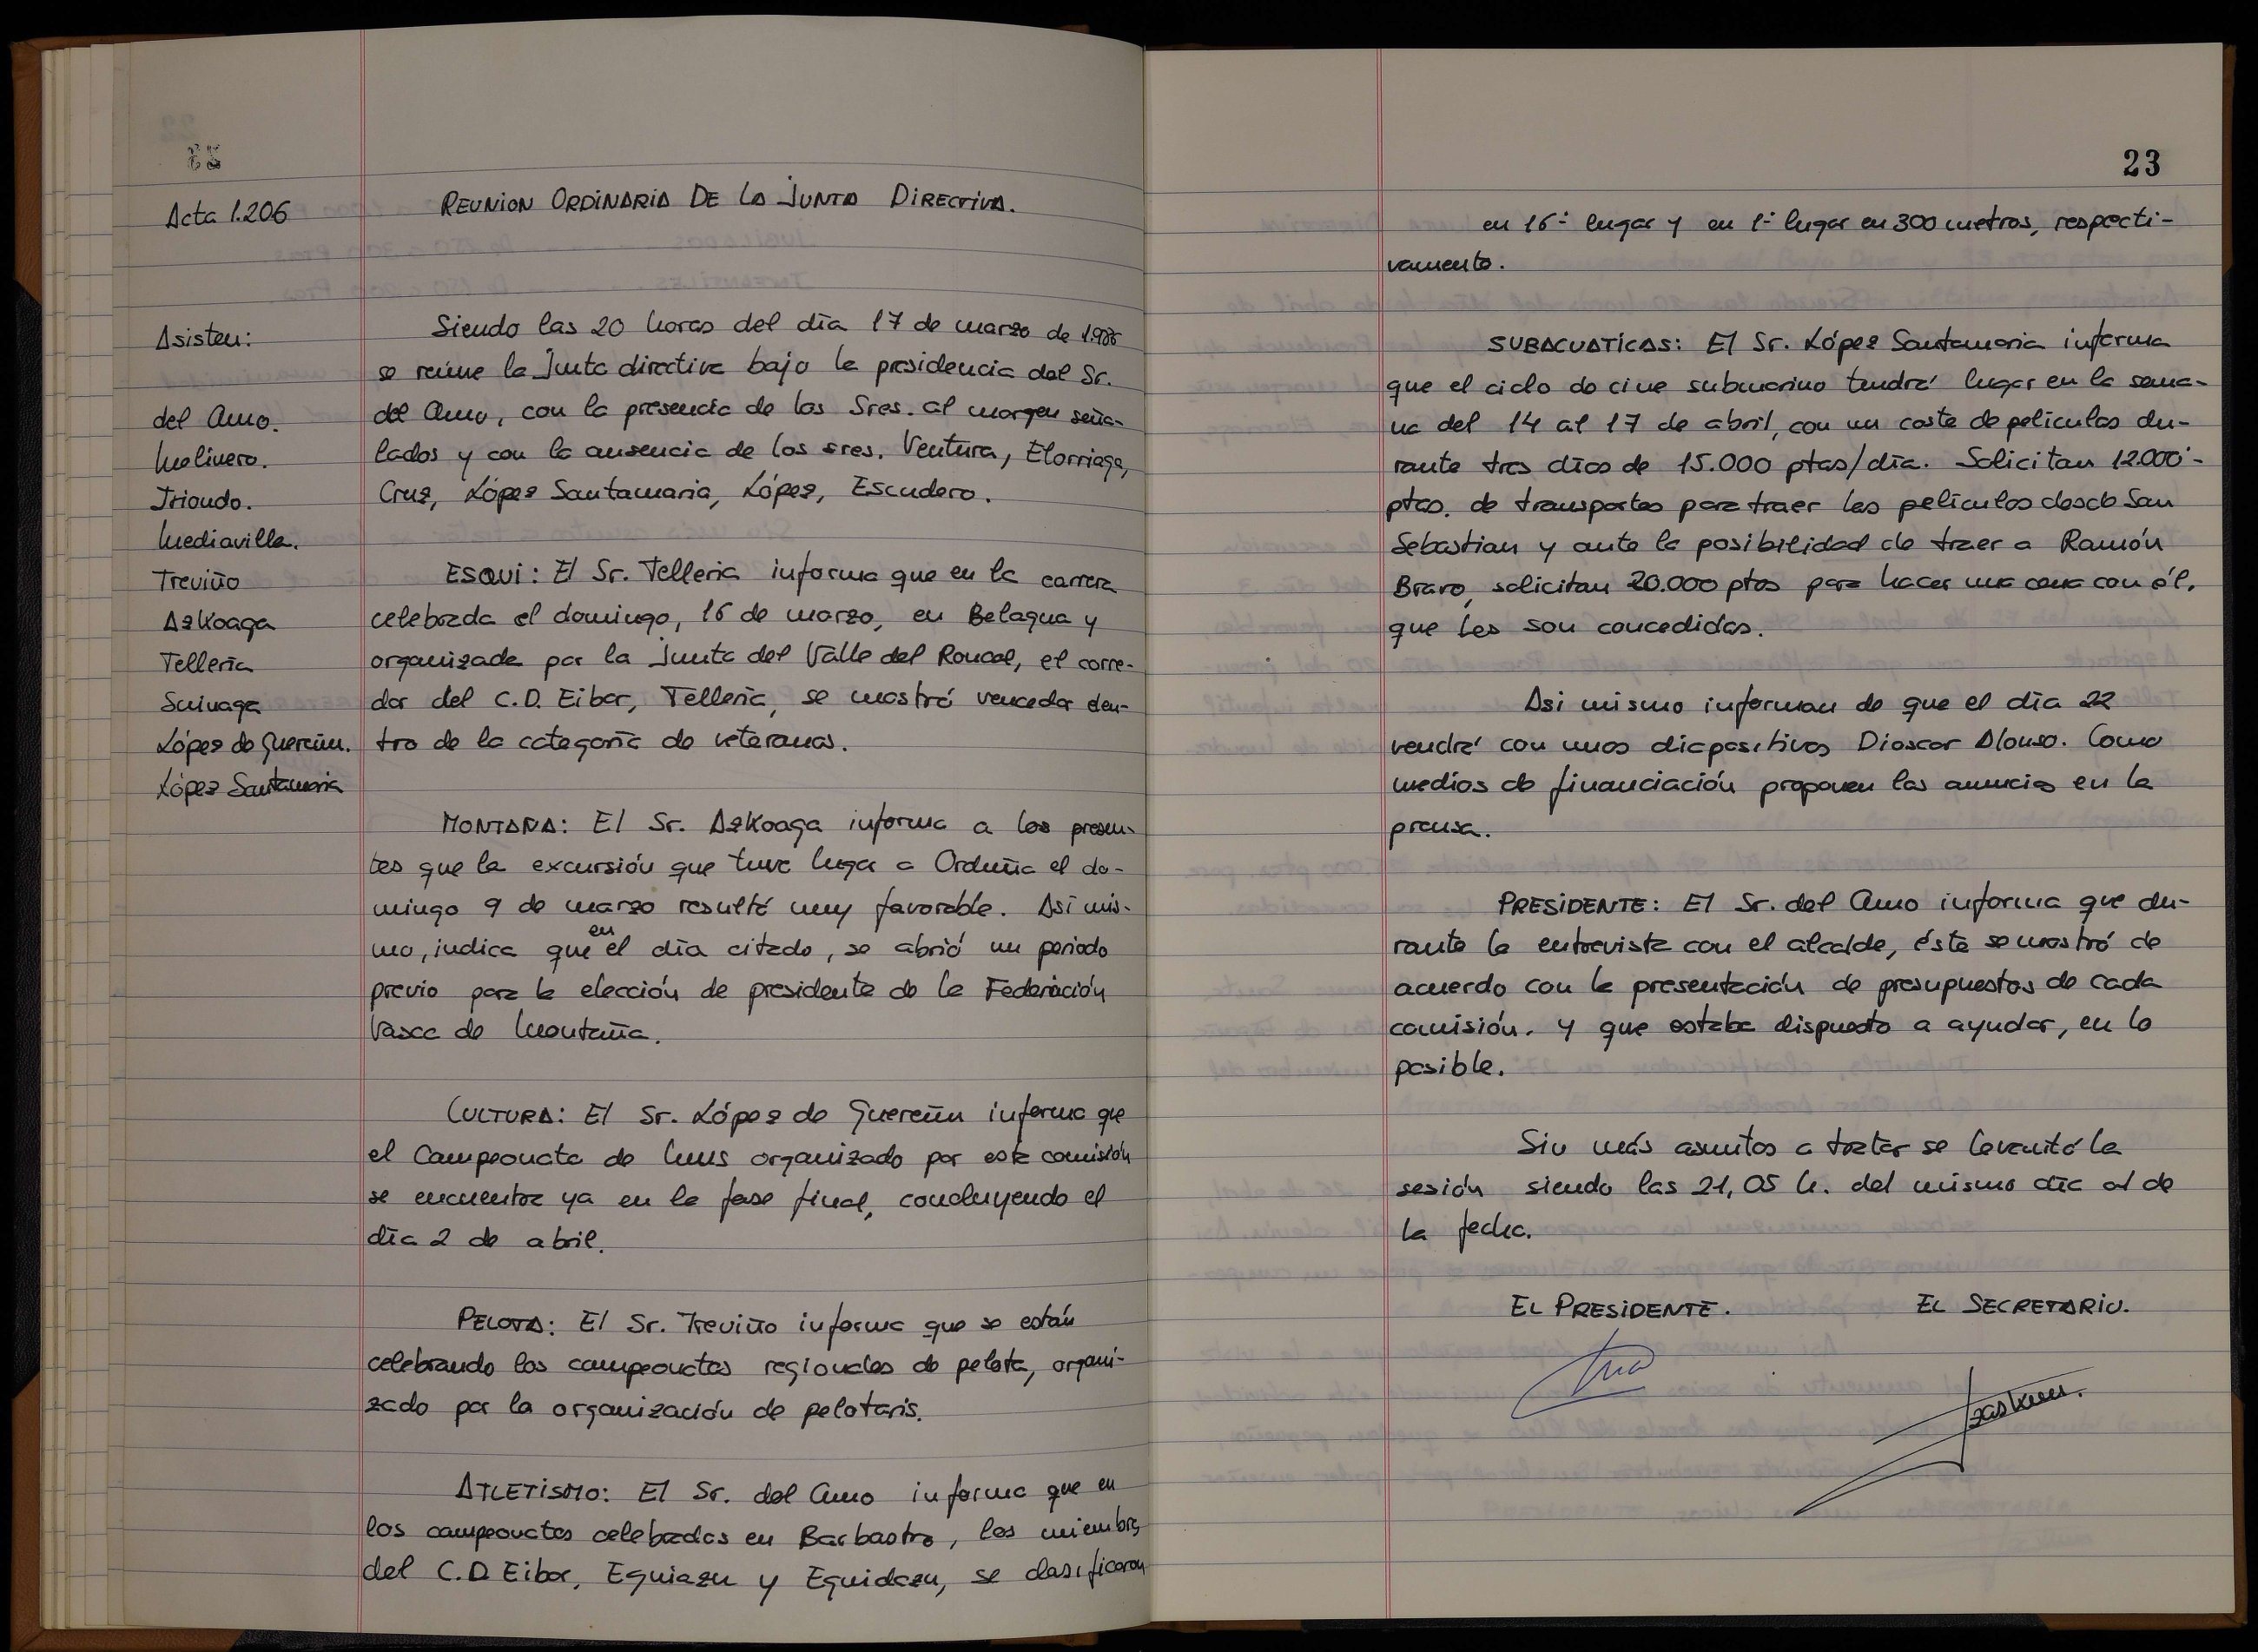 Acta 1.206
REUNION ORDINARIA DE LA JUNTA DIRECTIVA.
Asisten:
del Amo.
Molinero.
Iriondo.
Mediavilla.
Treviño
Azkoaga
Telleria
Suinaga
López de Guereñu.
López Santamaria
Siendo las 20 horas del día 17 de marzo de 1.986
se reúne la Junta directiva bajo la presidencia del Sr.
del Amo, con la presencia de los Sres. al margen seña-
lados y con la ausencia de los sres. Ventura, Elorriaga,
Cruz, López Santamaria, López, Escudero.
ESQUI: El Sr. Telleria informa que en la carrera
celebrada el domingo, 16 de marzo, en Belagua y
organizada por la Junta del Valle del Roncal, el corre-
dor del C.D. Eibar, Telleria, se mostró vencedor den-
tro de la categoría de veteranos.
MONTAÑA: El Sr. Azkoaga informa a los presen-
tes que la excursión que tuvo lugar a Orduña el do-
mingo 9 de marzo resultó muy favorable. Asi mis-
mo, indica que en el día citado, se abrió un periodo
previo para la elección de presidente de la Federación
Vasca de Montaña.
CULTURA: El Sr. López de Guereñu informa que
el Campeonato de Mus organizado por esta comisión
se encuentra ya en la fase final, concluyendo el
día 2 de abril.
PELOTA: El Sr. Treviño informa que se están
celebrando los campeonatos regionales de pelota, organi-
zado por la organización de pelotaris.
ATLETISMO: El Sr. del Amo informa que en
los campeonatos celebrados en Barbastro, los miembros
del C.D. Eibar, Eguiazu y Eguidazu, se clasificaron
23
en 16º lugar y en 1º lugar en 300 metros, respecti-
vamente.
SUBACUATICAS: El Sr. López Santamaria informa
que el ciclo de cine submarino tendrá lugar en la sema-
na del 14 al 17 de abril, con un coste de películas du-
rante tres días de 15.000 ptas/día. Solicitan 12.000'-
ptas. de transportes para traer las películas desde San
Sebastian y ante la posibilidad de traer a Ramón
Bravo, solicitan 20.000 ptas para hacer una cena con él,
que les son concedidas.
Asi mismo informan de que el día 22
vendrá con unas diapositivas Dioscor Alonso. Como
medios de financiación proponen los anuncios en la
prensa.
PRESIDENTE: El Sr. del Amo informa que du-
rante la entrevista con el alcalde, éste se mostró de
acuerdo con la presentación de presupuestos de cada
comisión. y que estaba dispuesto a ayudar, en lo
posible.
Sin más asuntos a tratar se levantó la
sesión siendo las 21,05 h. del mismo día al de
la fecha.
EL PRESIDENTE.
EL SECRETARIO.